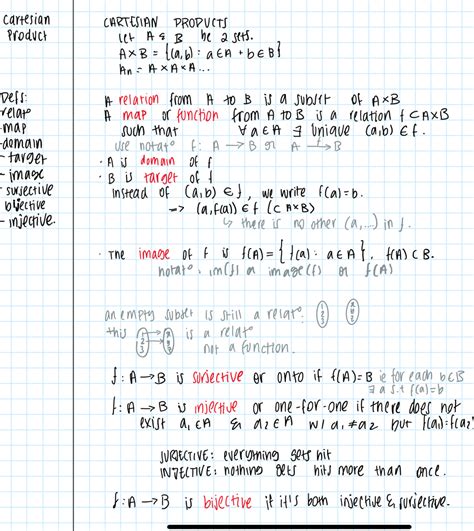 Cartesian
Product
CARTESIAN PRODUCTS
Let A & B be 2 sets.
A×B = {(a,b) : a∈A + b∈B}
An = A×A×A...
Defs:
- relat°
- map
- domain
- target
- image
- surjective
bijective
- injective.
A relation from A to B is a subset of A×B
A map or function from A to B is a relation f⊂A×B
such that ∀a∈A ∃ unique (a,b)∈f.
use notat° f: A → B or A →f B
· A is domain of f
· B is target of f
instead of (a,b)∈f, we write f(a)=b.
→ (a,f(a))∈f (⊂A×B)
↳ there is no other (a,...) in f.
· The image of f is f(A)={f(a): a∈A}. f(A)⊂B.
notat°: im(f) or image(f) or f(A)
an empty subset is still a relat°: 1 2 3
this 1 2 3 is a relat°
not a function.
f: A→B is surjective or onto if f(A)=B ie for each b∈B
∃ a s.t f(a)=b
f: A→B is injective or one-for-one if there does not
exist a₁∈A & a₂∈A w/ a₁≠a₂ but f(a₁)=f(a₂)
SURJECTIVE: everything gets hit
INJECTIVE: nothing gets hit more than once.
f: A→B is bijective if it's both injective & surjective.